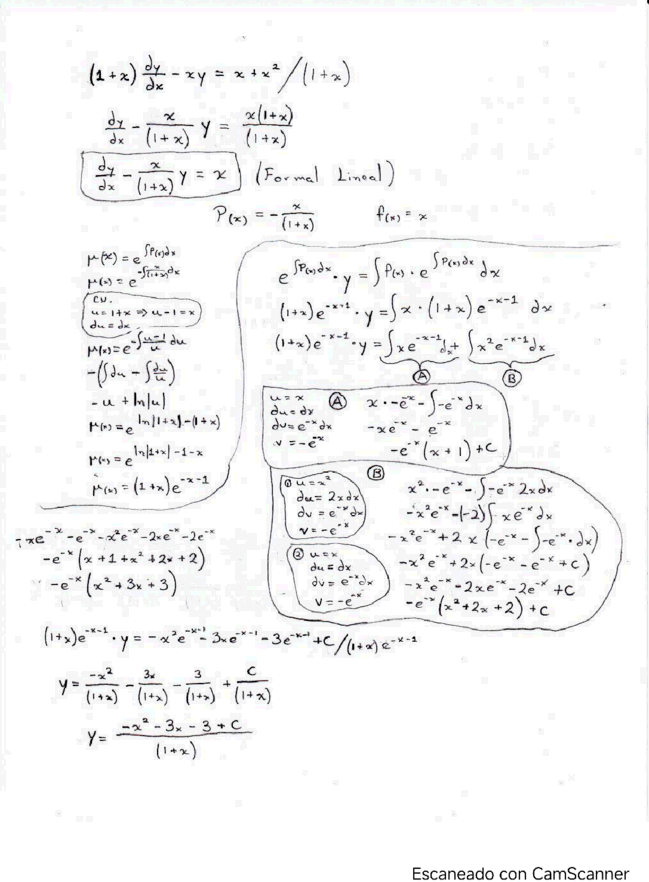 (1+x) dy/dx - xy = x + x² /(1+x)
dy/dx - x/(1+x) y = x(1+x)/(1+x)
dy/dx - x/(1+x) y = x (Formal Lineal)
P(x) = - x/(1+x) f(x) = x
μ(x) = e^∫P(x)dx
μ(x) = e^-∫x/(1+x)dx
C.V.
u=1+x ⇒ u-1=x
du=dx
μ(x)=e^-∫(u-1)/u du
-(∫du - ∫du/u)
-u + ln|u|
μ(x)=e^ln|1+x|-(1+x)
μ(x)=e^ln|1+x|-1-x
μ(x)=(1+x)e^-x-1
e^∫P(x)dx · y = ∫f(x) · e^∫P(x)dx dx
(1+x)e^-x-1 · y = ∫x · (1+x) e^-x-1 dx
(1+x)e^-x-1 · y = ∫xe^-x-1 dx + ∫x²e^-x-1 dx
A B
A
u=x
du=dx
dv=e^-x dx
v=-e^-x
x·-e^-x - ∫-e^-x dx
-xe^-x - e^-x
-e^-x(x+1)+C
B
① u=x²
du=2xdx
dv=e^-x dx
v=-e^-x
② u=x
du=dx
dv=e^-x dx
v=-e^-x
x²·-e^-x - ∫-e^-x 2xdx
-x²e^-x -(-2)∫xe^-x dx
-x²e^-x + 2x(-e^-x - ∫-e^-x·dx)
-x²e^-x + 2x(-e^-x - e^-x + C)
-x²e^-x - 2xe^-x - 2e^-x + C
-e^-x(x²+2x+2)+C
-xe^-x - e^-x - x²e^-x - 2xe^-x - 2e^-x
-e^-x(x+1+x²+2x+2)
-e^-x(x²+3x+3)
(1+x)e^-x-1 · y = -x²e^-x-1 - 3xe^-x-1 - 3e^-x-1 + C /(1+x)e^-x-1
y = -x²/(1+x) - 3x/(1+x) - 3/(1+x) + C/(1+x)
y = (-x² - 3x - 3 + C)/(1+x)
Escaneado con CamScanner